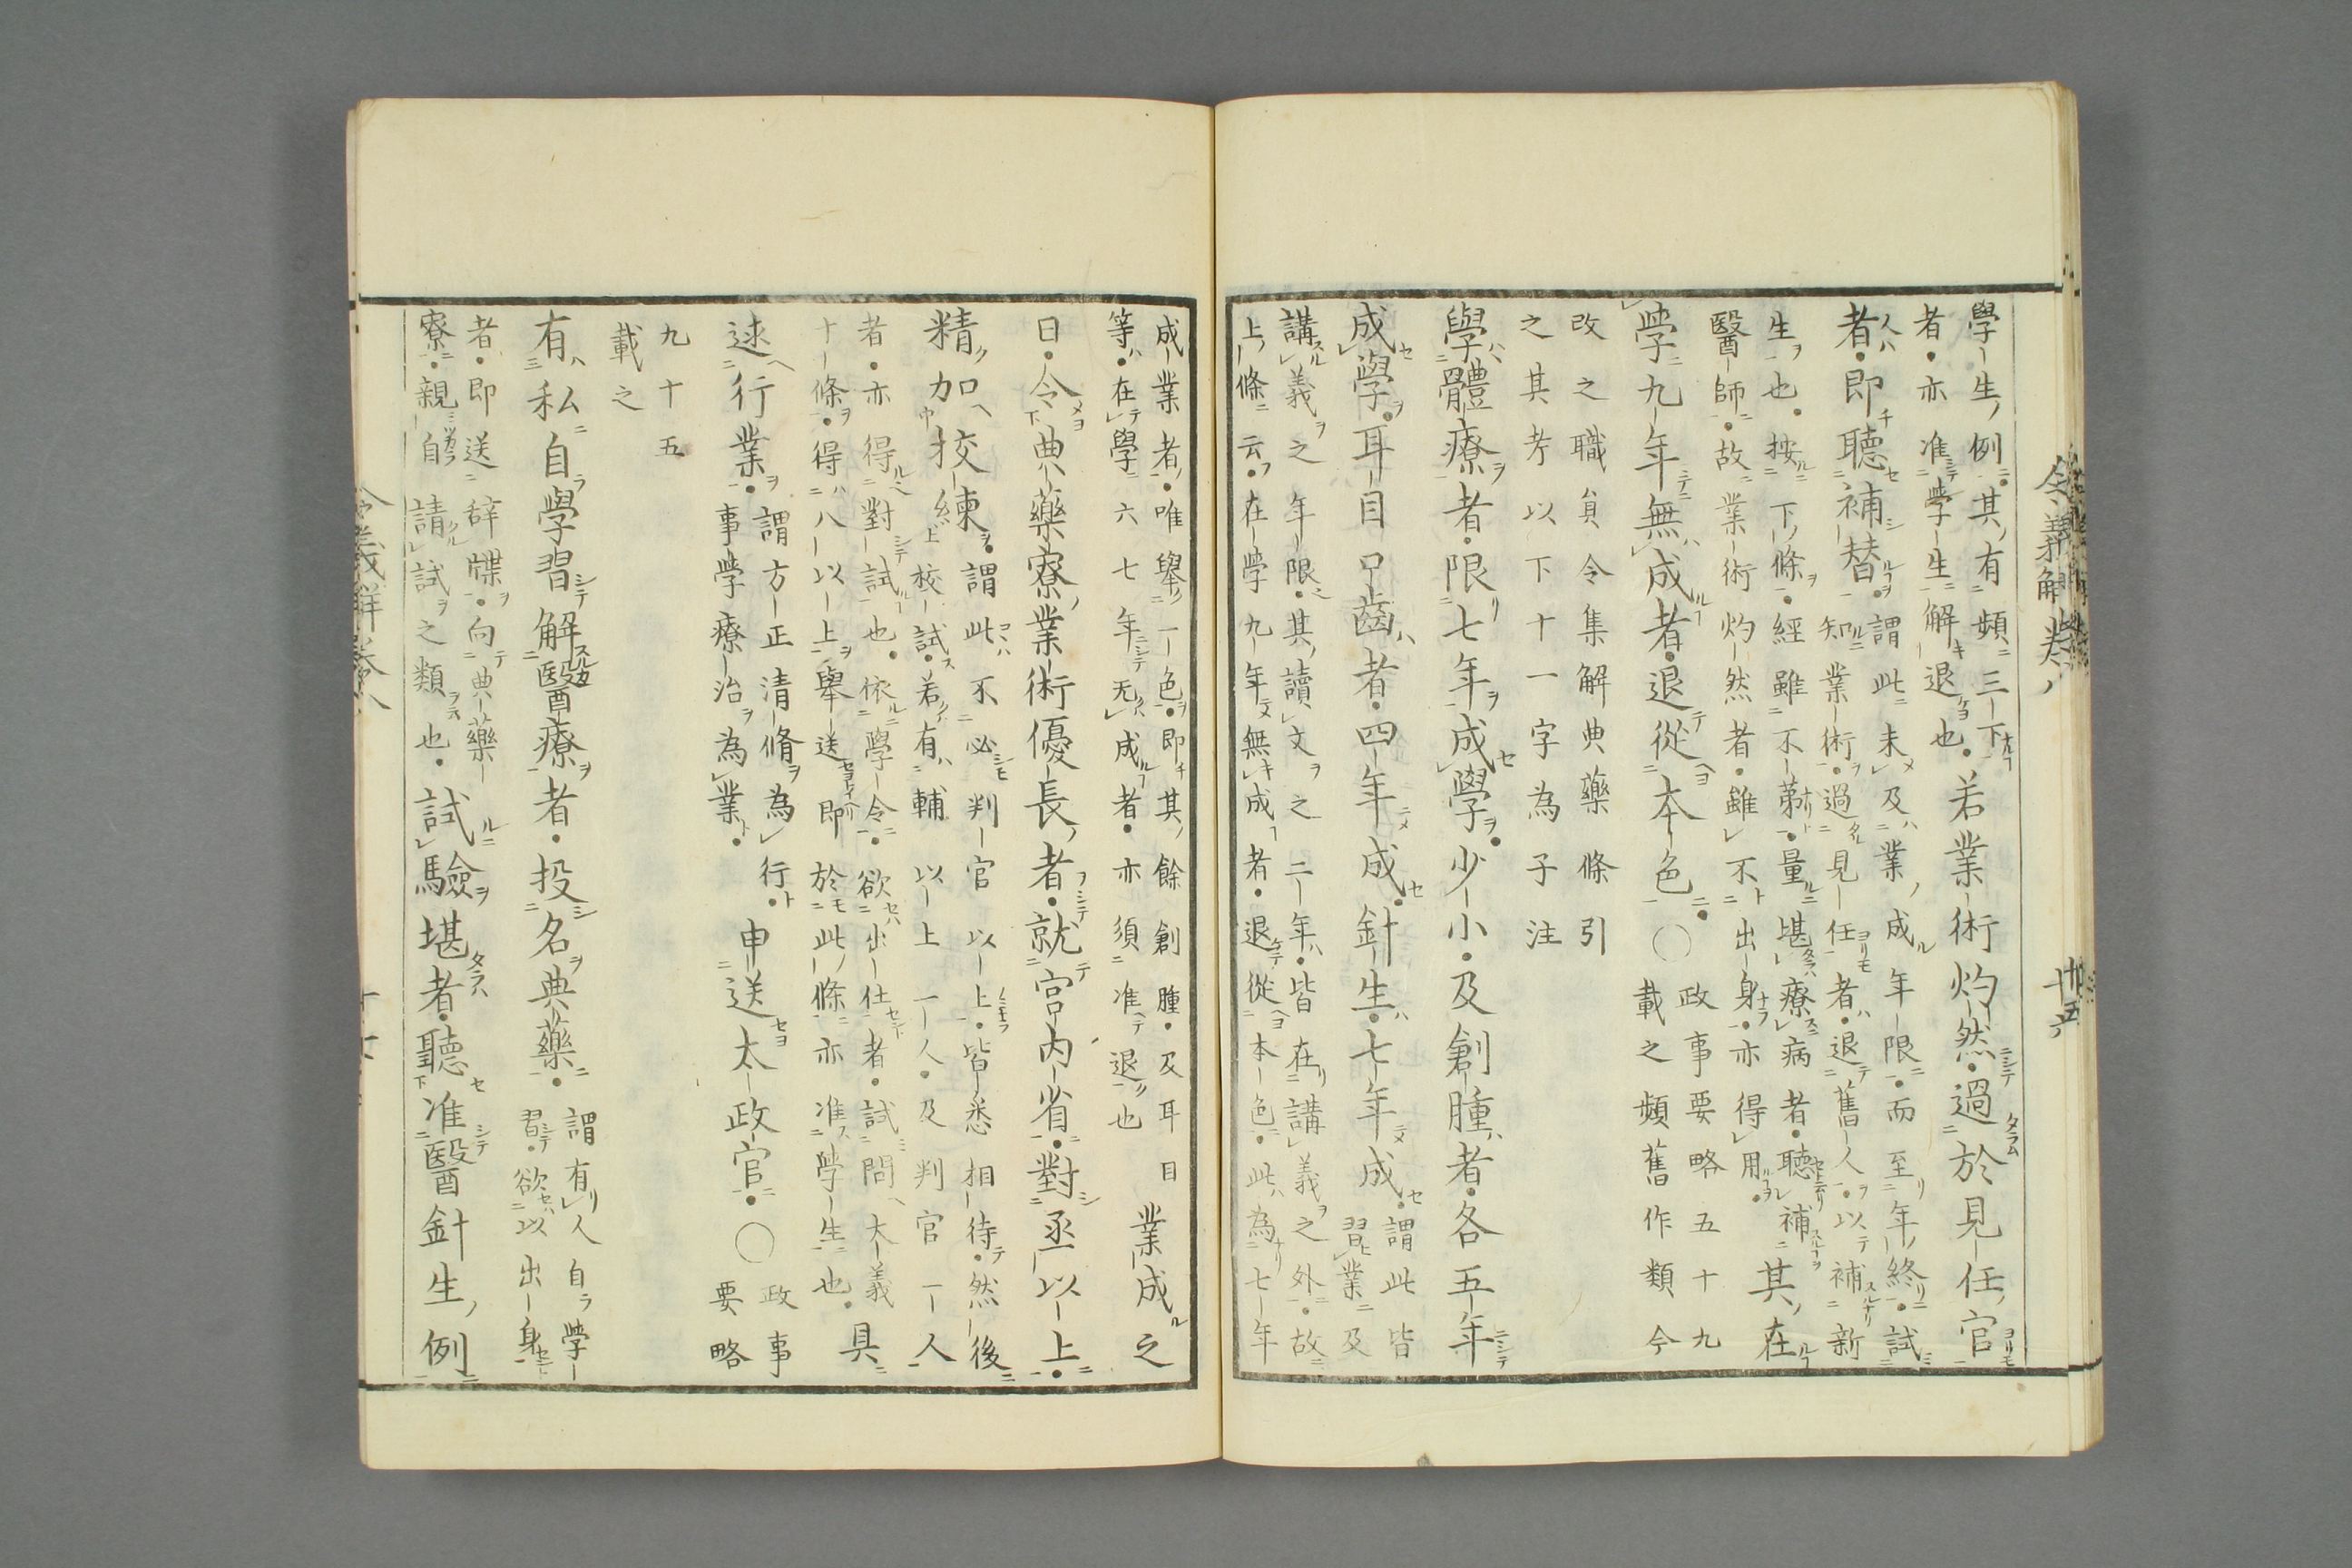 學生例其有頻三下
者亦准學生解退也
若業術灼然過於見任官
者即聽補替
謂此未及業成年限而至年終試
知業術過見任者退舊人以補新
生也按下條經雖不第量堪療病者聽補
醫師故業術灼然者雖不出身亦得用
其在
學九年無成者退從本色○
政事要略五十九
載之頻舊作類今
改之職員令集解典藥條引
之其考以下十一字為子注
學體療者限七年成學少小及創腫者各五年
成學耳目口齒者四年成針生七年成
謂此皆
習業及
講義之年限其讀文之二年皆在講義之外故
上條云在學九年無成者退從本色此為七年
成業者唯舉一色即其餘創腫及耳目
等在學六七年无成者亦須准退也
業成之
日令典藥寮業術優長者就宮内省對丞以上
精加挍練
謂此不必判官以上皆悉相待然後
校試若有輔以上一人及判官一人
者亦得對試也依學令欲出仕者試問大義
十條得八以上舉送即於此條亦准學生也
具
述行業
謂方正清脩為行
事學療治為業
申送太政官○
政事
要略
九十五
載之
有私自學習解醫療者投名典藥
謂有人自學
習欲以出身
者即送辞牒向典藥
寮親自請試之類也
試驗堪者聽准醫針生例